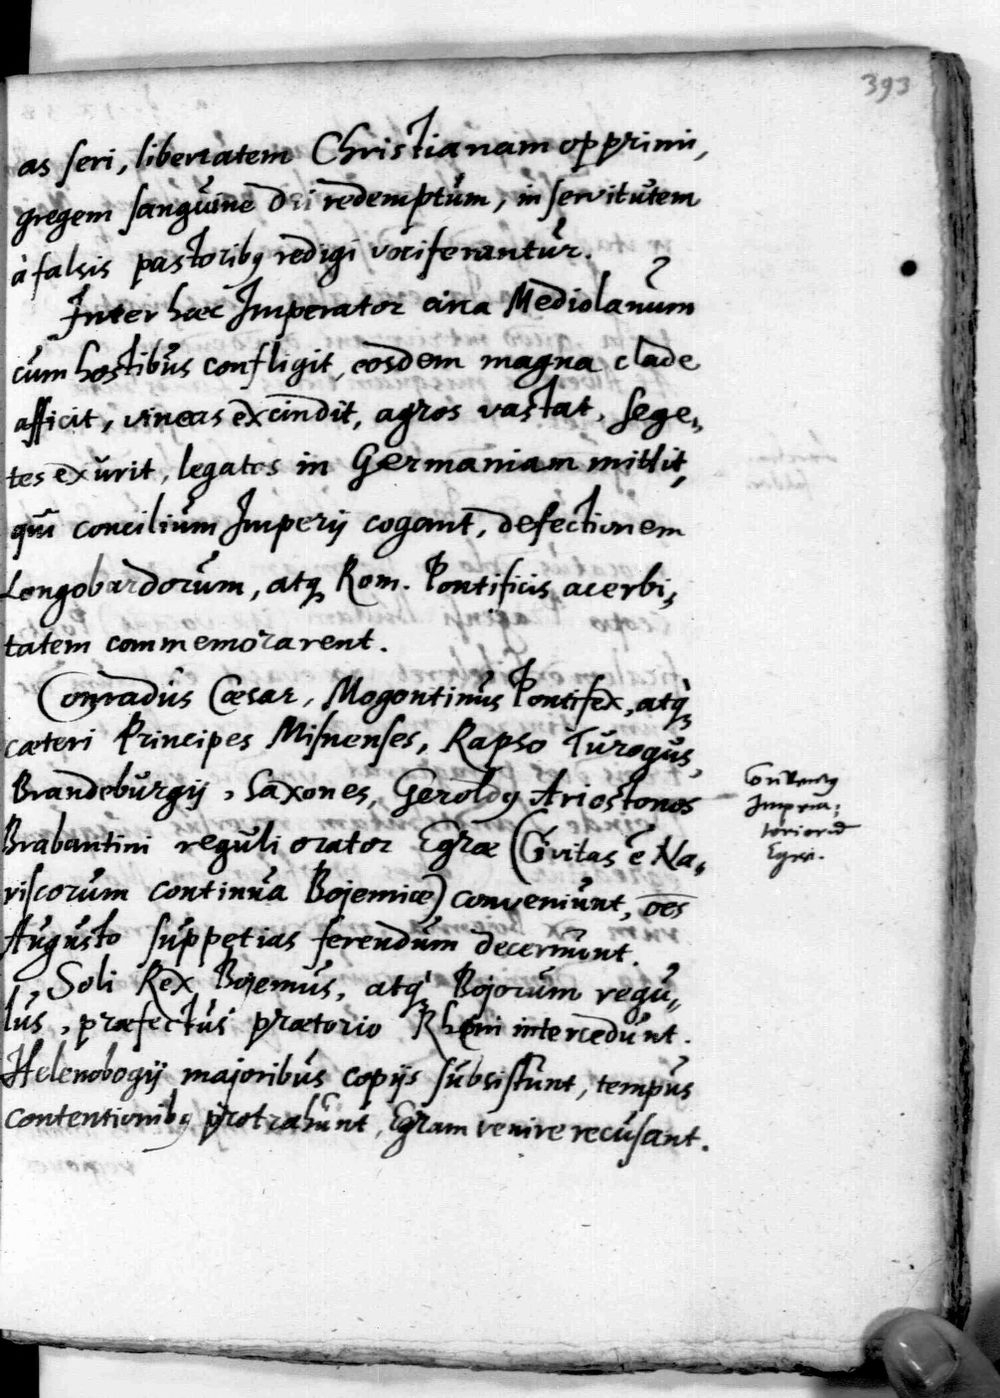 393
as seri, libertatem Christianam opprimi,
gregem sanguine Dei redemptum, in servitutem
à falsis pastoribꝰ redigi vociferantur.
Inter haec Imperator circa Mediolanum
cum hostibus confligit, eosdem magna clade
afficit, vineas excindit, agros vastat, sege„
tes exurit, legatos in Germaniam mittit,
qui concilium Imperij cogant, defectionem
Longobardorum, atqꝫ Rom. Pontificis acerbi„
tatem commemorarent.
Conradus Caesar, Mogontinus Pontifex, atqꝫ
caeteri Principes Misnenses, Rapso Turogus,
Brandeburgij, Saxones, Geroldꝰ Ariostonos
Brabantini reguli orator Egrae (Civitas è Na„
riscorum continua Bojemiae) conveniunt, oēs
Augusto suppetias ferendum decernunt.
Soli Rex Bojemus, atqꝫ Bojorum regu„
lus, praefectus praetorio Rheni intercedunt.
Helenobogij majoribus copijs subsistunt, tempus
contentionibꝰ protrahunt, Egram venire recusant.
Conventꝰ
Imperia:
toriorū
Egrae.